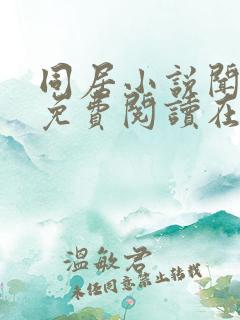 同居小說閱
免費閱讀在
溫敏君
未經同意禁止轉載